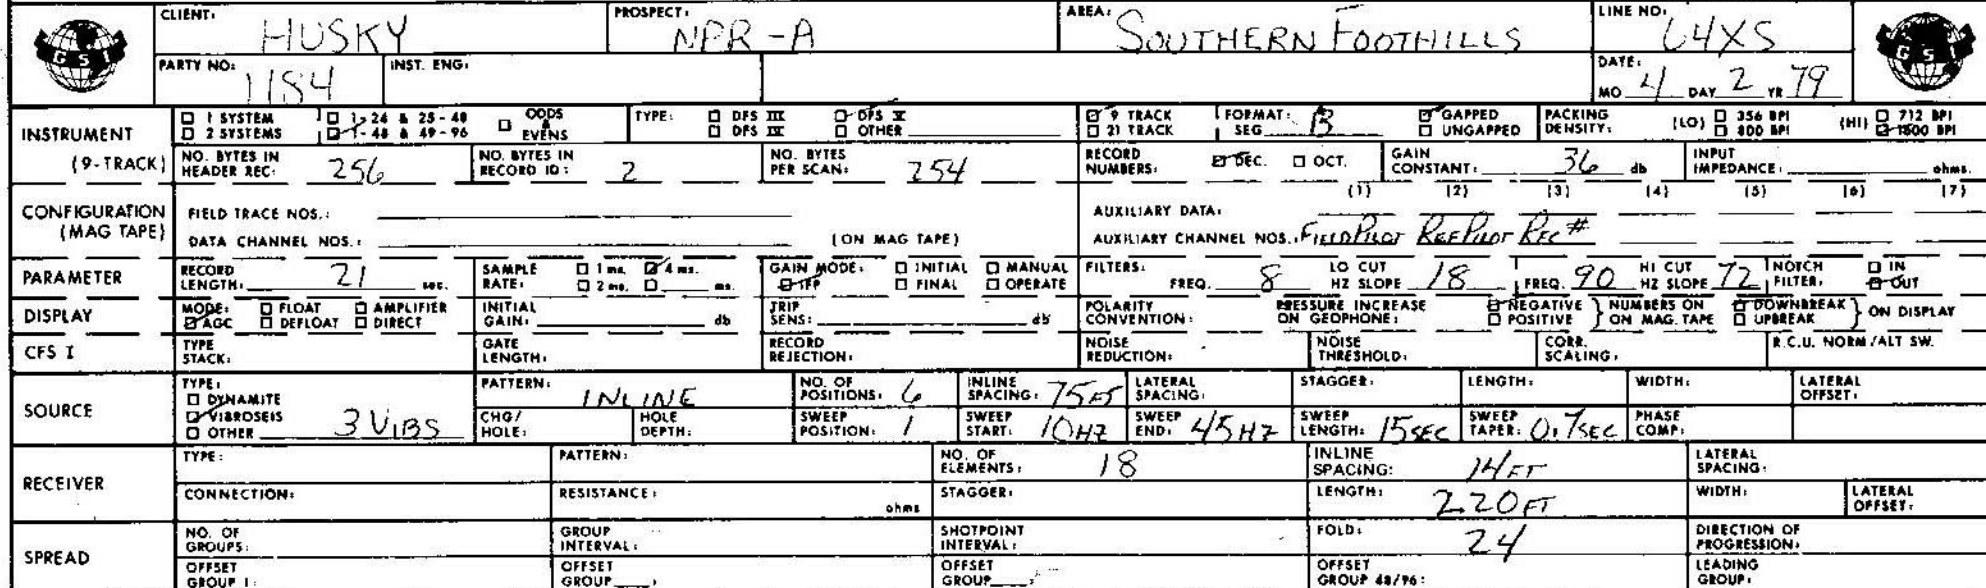 CLIENT: HUSKY PROSPECT: NPR-A AREA: SOUTHERN FOOTHILLS LINE NO: 64XS
GSI GSI
PARTY NO: 1184 INST. ENG: DATE: MO 4 DAY 2 YR 79
INSTRUMENT (9-TRACK)
1 SYSTEM 1-24 & 25-48 ODDS & EVENS TYPE: DFS III DFS V 9 TRACK FORMAT: SEG B GAPPED PACKING DENSITY: (LO) 356 BPI (HI) 712 BPI
2 SYSTEMS 1-48 & 49-96 DFS IV OTHER 21 TRACK UNGAPPED 800 BPI 1600 BPI
NO. BYTES IN HEADER REC: 256 NO. BYTES IN RECORD ID: 2 NO. BYTES PER SCAN: 254 RECORD NUMBERS: DEC. OCT. GAIN CONSTANT: 36 db INPUT IMPEDANCE: ohms.
CONFIGURATION (MAG TAPE)
(1) (2) (3) (4) (5) (6) (7)
FIELD TRACE NOS.: AUXILIARY DATA:
DATA CHANNEL NOS.: (ON MAG TAPE) AUXILIARY CHANNEL NOS.: FIELD PILOT REF PILOT REC #
PARAMETER RECORD LENGTH: 21 sec. SAMPLE RATE: 1 ms. 4 ms. 2 ms. ms. GAIN MODE: INITIAL MANUAL IFP FINAL OPERATE FILTERS: FREQ. 8 LO CUT HZ SLOPE 18 FREQ. 90 HI CUT HZ SLOPE 72 NOTCH FILTER: IN OUT
DISPLAY MODE: FLOAT AMPLIFIER AGC DEFLOAT DIRECT INITIAL GAIN: db TRIP SENS: db POLARITY CONVENTION: PRESSURE INCREASE ON GEOPHONE: NEGATIVE POSITIVE NUMBERS ON ON MAG. TAPE DOWNBREAK UPBREAK ON DISPLAY
CFS I TYPE STACK: GATE LENGTH: RECORD REJECTION: NOISE REDUCTION: NOISE THRESHOLD: CORR. SCALING: R.C.U. NORM/ALT SW.
SOURCE TYPE: DYNAMITE VIBROSEIS OTHER 3 VIBS PATTERN: INLINE NO. OF POSITIONS: 6 INLINE SPACING: 75 FT LATERAL SPACING: STAGGER: LENGTH: WIDTH: LATERAL OFFSET:
CHG/HOLE: HOLE DEPTH: SWEEP POSITION: 1 SWEEP START: 10HZ SWEEP END: 45HZ SWEEP LENGTH: 15SEC SWEEP TAPER: 0.7SEC PHASE COMP:
RECEIVER TYPE: PATTERN: NO. OF ELEMENTS: 18 INLINE SPACING: 14 FT LATERAL SPACING:
CONNECTION: RESISTANCE: ohms STAGGER: LENGTH: 220 FT WIDTH: LATERAL OFFSET:
SPREAD NO. OF GROUPS: GROUP INTERVAL: SHOTPOINT INTERVAL: FOLD: 24 DIRECTION OF PROGRESSION:
OFFSET GROUP 1: OFFSET GROUP : OFFSET GROUP : OFFSET GROUP 48/96: LEADING GROUP: